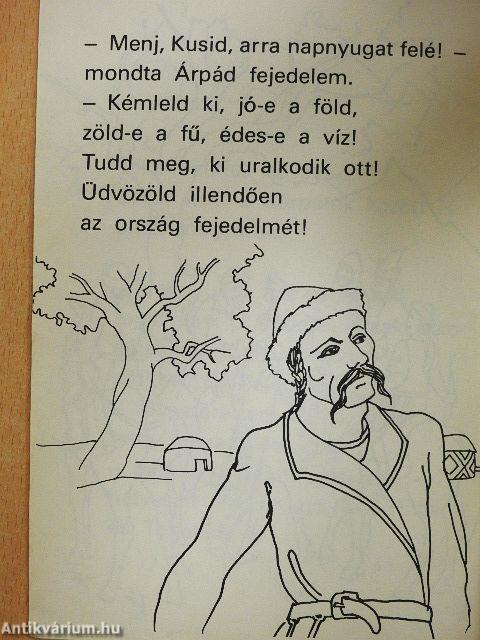 – Menj, Kusid, arra napnyugat felé! –
mondta Árpád fejedelem.
– Kémleld ki, jó-e a föld,
zöld-e a fű, édes-e a víz!
Tudd meg, ki uralkodik ott!
Üdvözöld illendően
az ország fejedelmét!
Antikvárium.hu